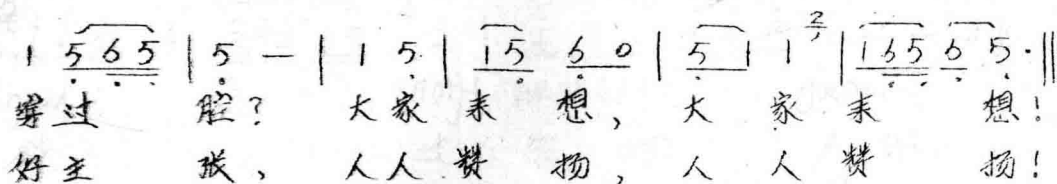 1 5 6 5 | 5 — | 1 5 | 1 5 6 0 | 5 1 1 2 | 1 6 5 6 5 · ||
穿过 腔? 大家来 想, 大 家 来 想!
好主 张、 人人赞 扬, 人 人 赞 扬!